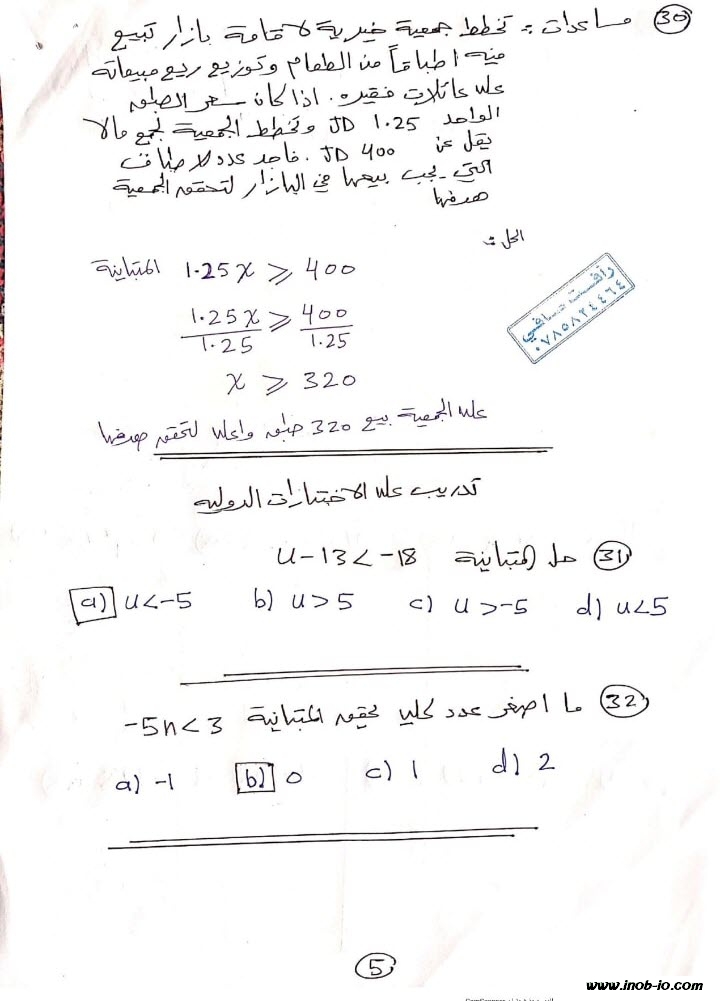 (30) مساعدات : تخطط جمعية خيرية لاقامة بازار تبيع
فيه اطباقاً من الطعام وتوزيع ريع مبيعاته
على عائلات فقيره . اذا كان سعر الطبق
الواحد JD 1.25 وتخطط الجمعية لجمع مالا
يقل عن JD 400 . فاجد عدد الاطباق
التي يجب بيعها في البازار لتحقق الجمعية
هدفها
الحل :
1.25x ⩾ 400 المتباينة
1.25x/1.25 ⩾ 400/1.25
x ⩾ 320
على الجمعية بيع 320 طبق واعلى لتحقق هدفها
رأفت صافي
٠٧٨٥٨٢٤٤٦٤
تدريب على الاختبارات الدولية
(31) حل المتباينة u-13<-18
a) u<-5 b) u>5 c) u>-5 d) u<5
(32) ما اصغر عدد كلي يحقق المتباينة -5n<3
a) -1 b) 0 c) 1 d) 2
5
www.inob-io.com